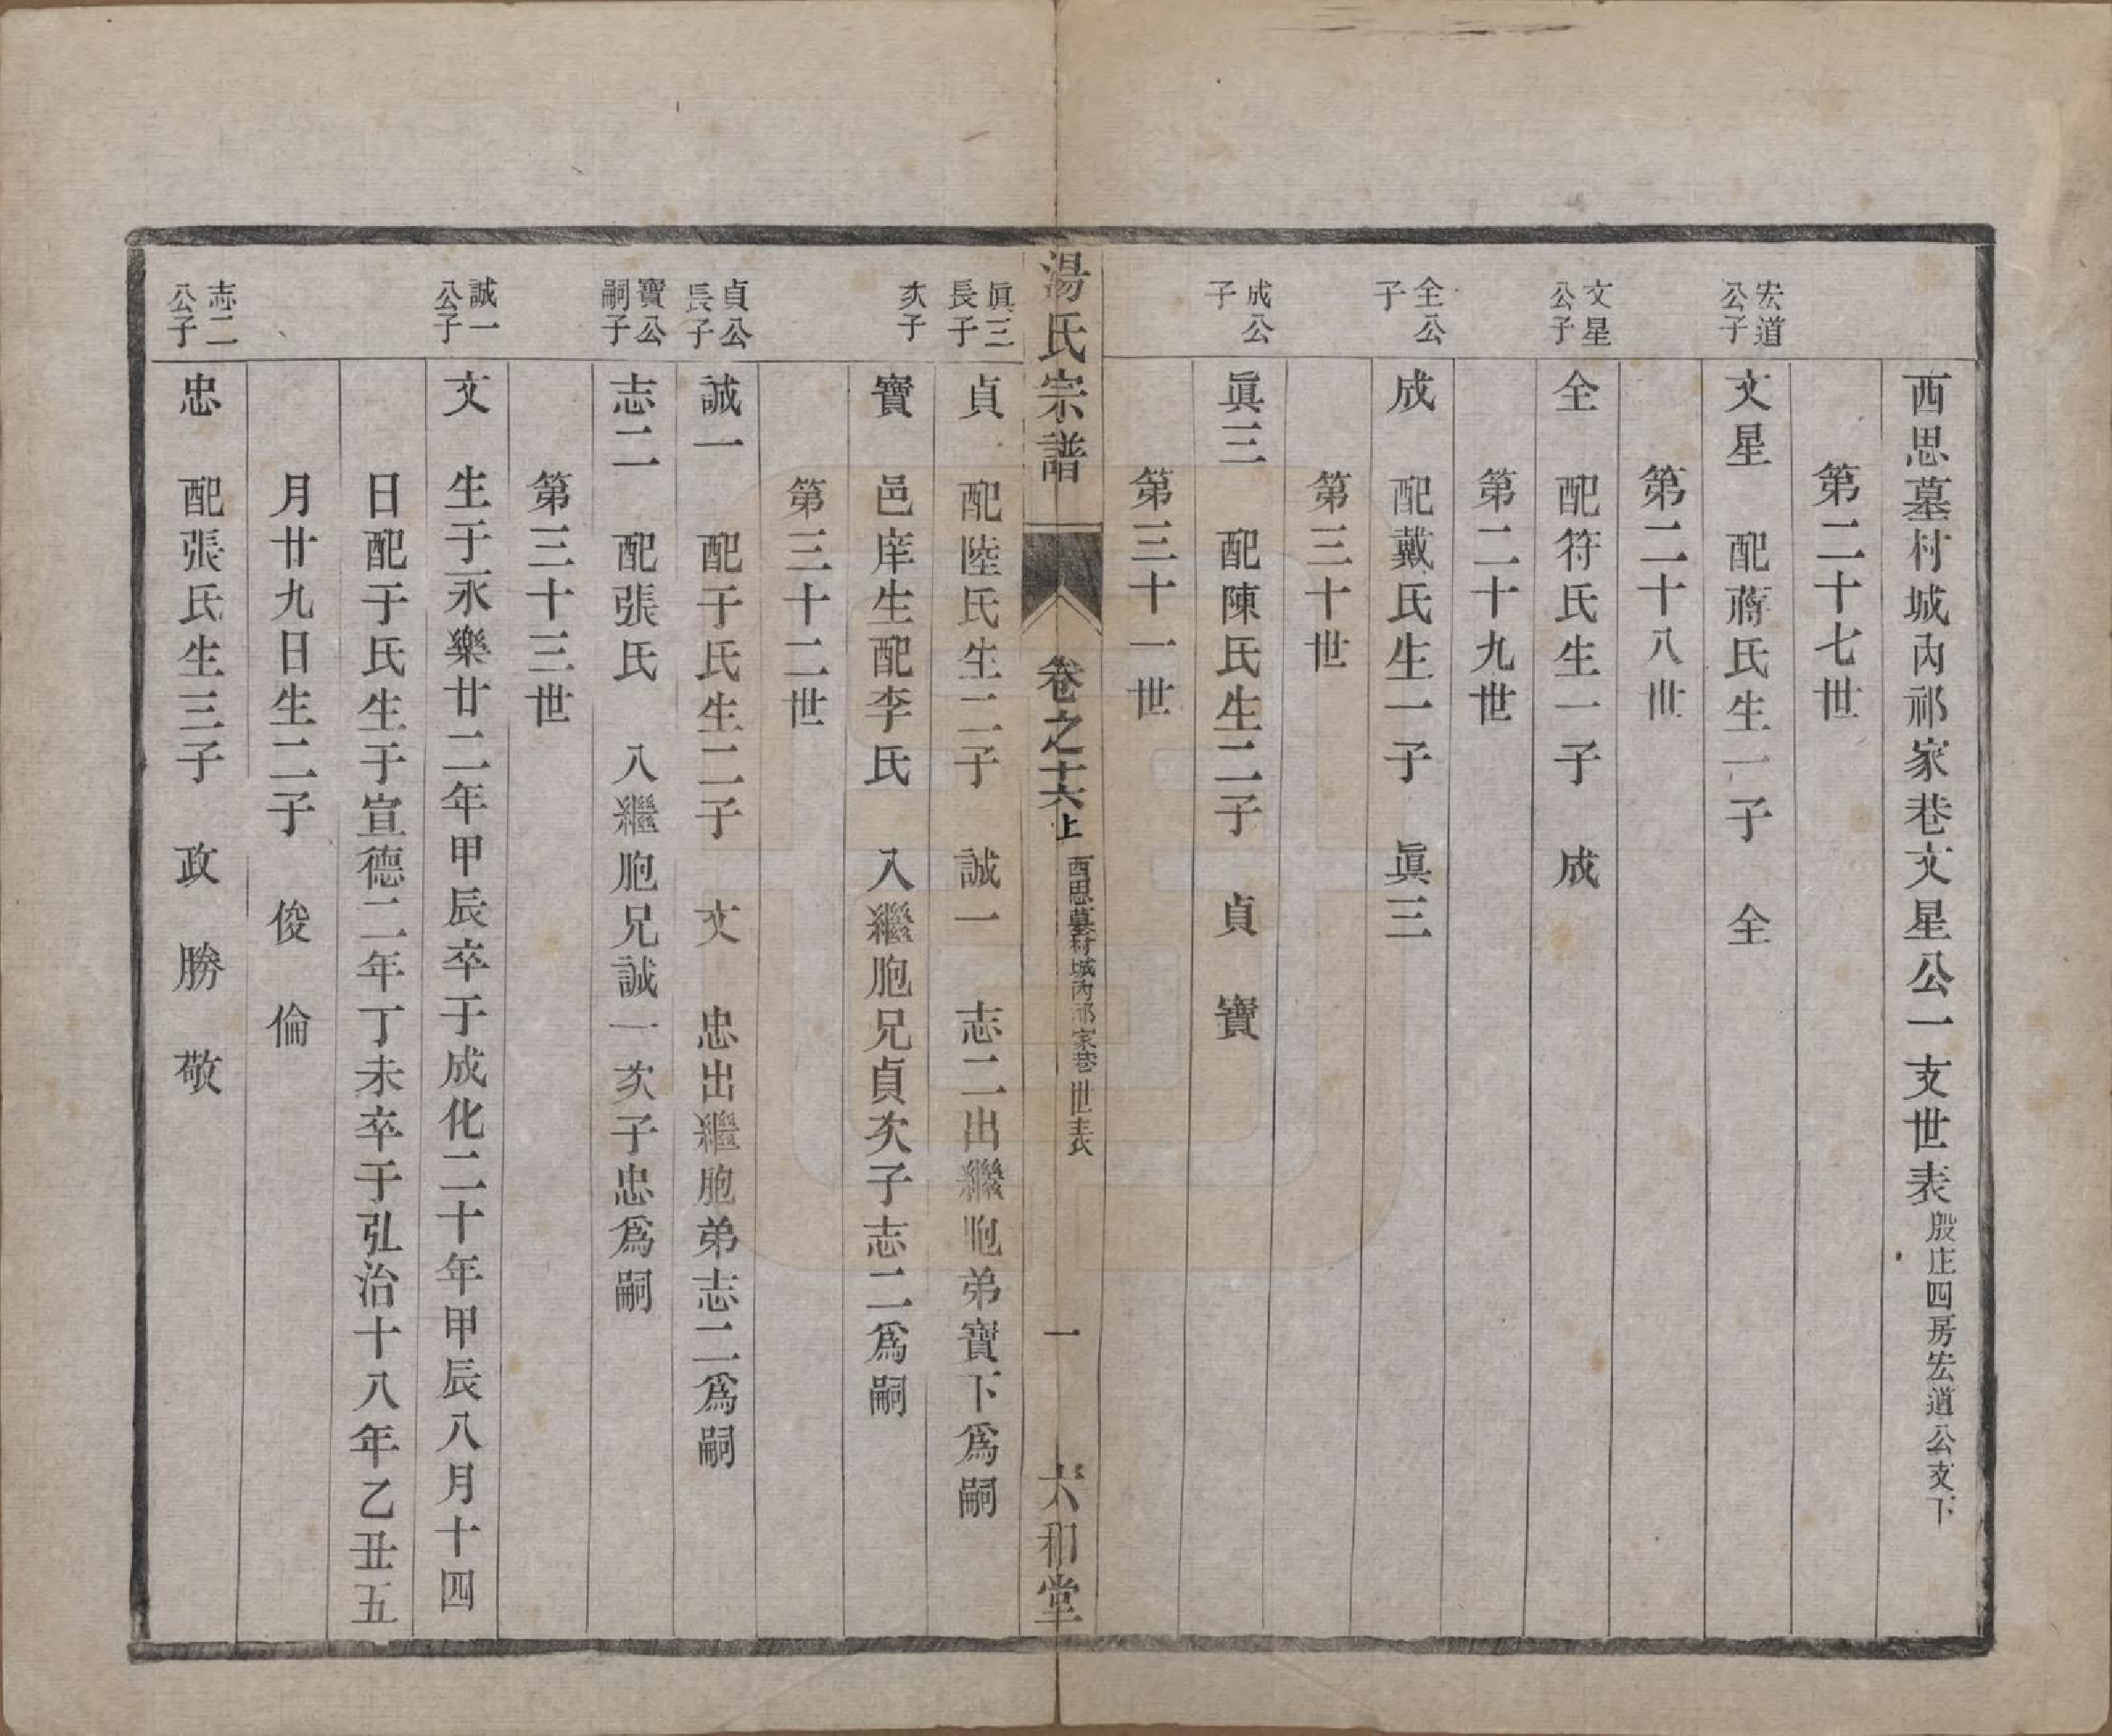 西思墓村城內祁家巷文星公一支世表殷庄四房宏道公支下
第二十七世
宏道公子
文星　配蔣氏生一子　全
第二十八世
文星公子
全　配符氏生一子　成
第二十九世
全公子
成　配戴氏生一子　眞三
第三十世
成公子
眞三　配陳氏生二子　貞　寶
第三十一世
湯氏宗譜　卷之十六上　西思墓村城內祁家巷世表　一　六和堂
眞三長子
貞　配陸氏生二子　誠一　志二出繼胞弟寶下爲嗣
次子
寶　邑庠生配李氏　入繼胞兄貞次子志二爲嗣
第三十二世
貞公長子
誠一　配于氏生二子　文　忠出繼胞弟志二爲嗣
寶公嗣子
志二　配張氏　入繼胞兄誠一次子忠爲嗣
第三十三世
誠一公子
文　生于永樂廿二年甲辰卒于成化二十年甲辰八月十四
日配于氏生于宣德二年丁未卒于弘治十八年乙丑五
月廿九日生二子　俊　倫
志二公子
忠　配張氏生三子　政　勝　敬